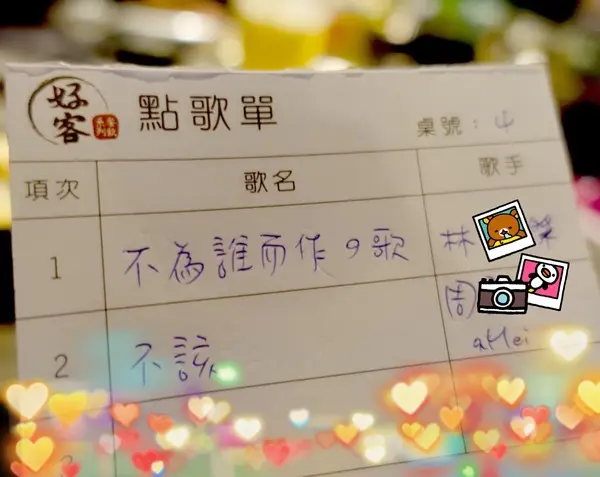 好客
點歌單
桌號：4
項次 歌名 歌手
1 不為誰而作の歌 林
2 不該 周
aMei